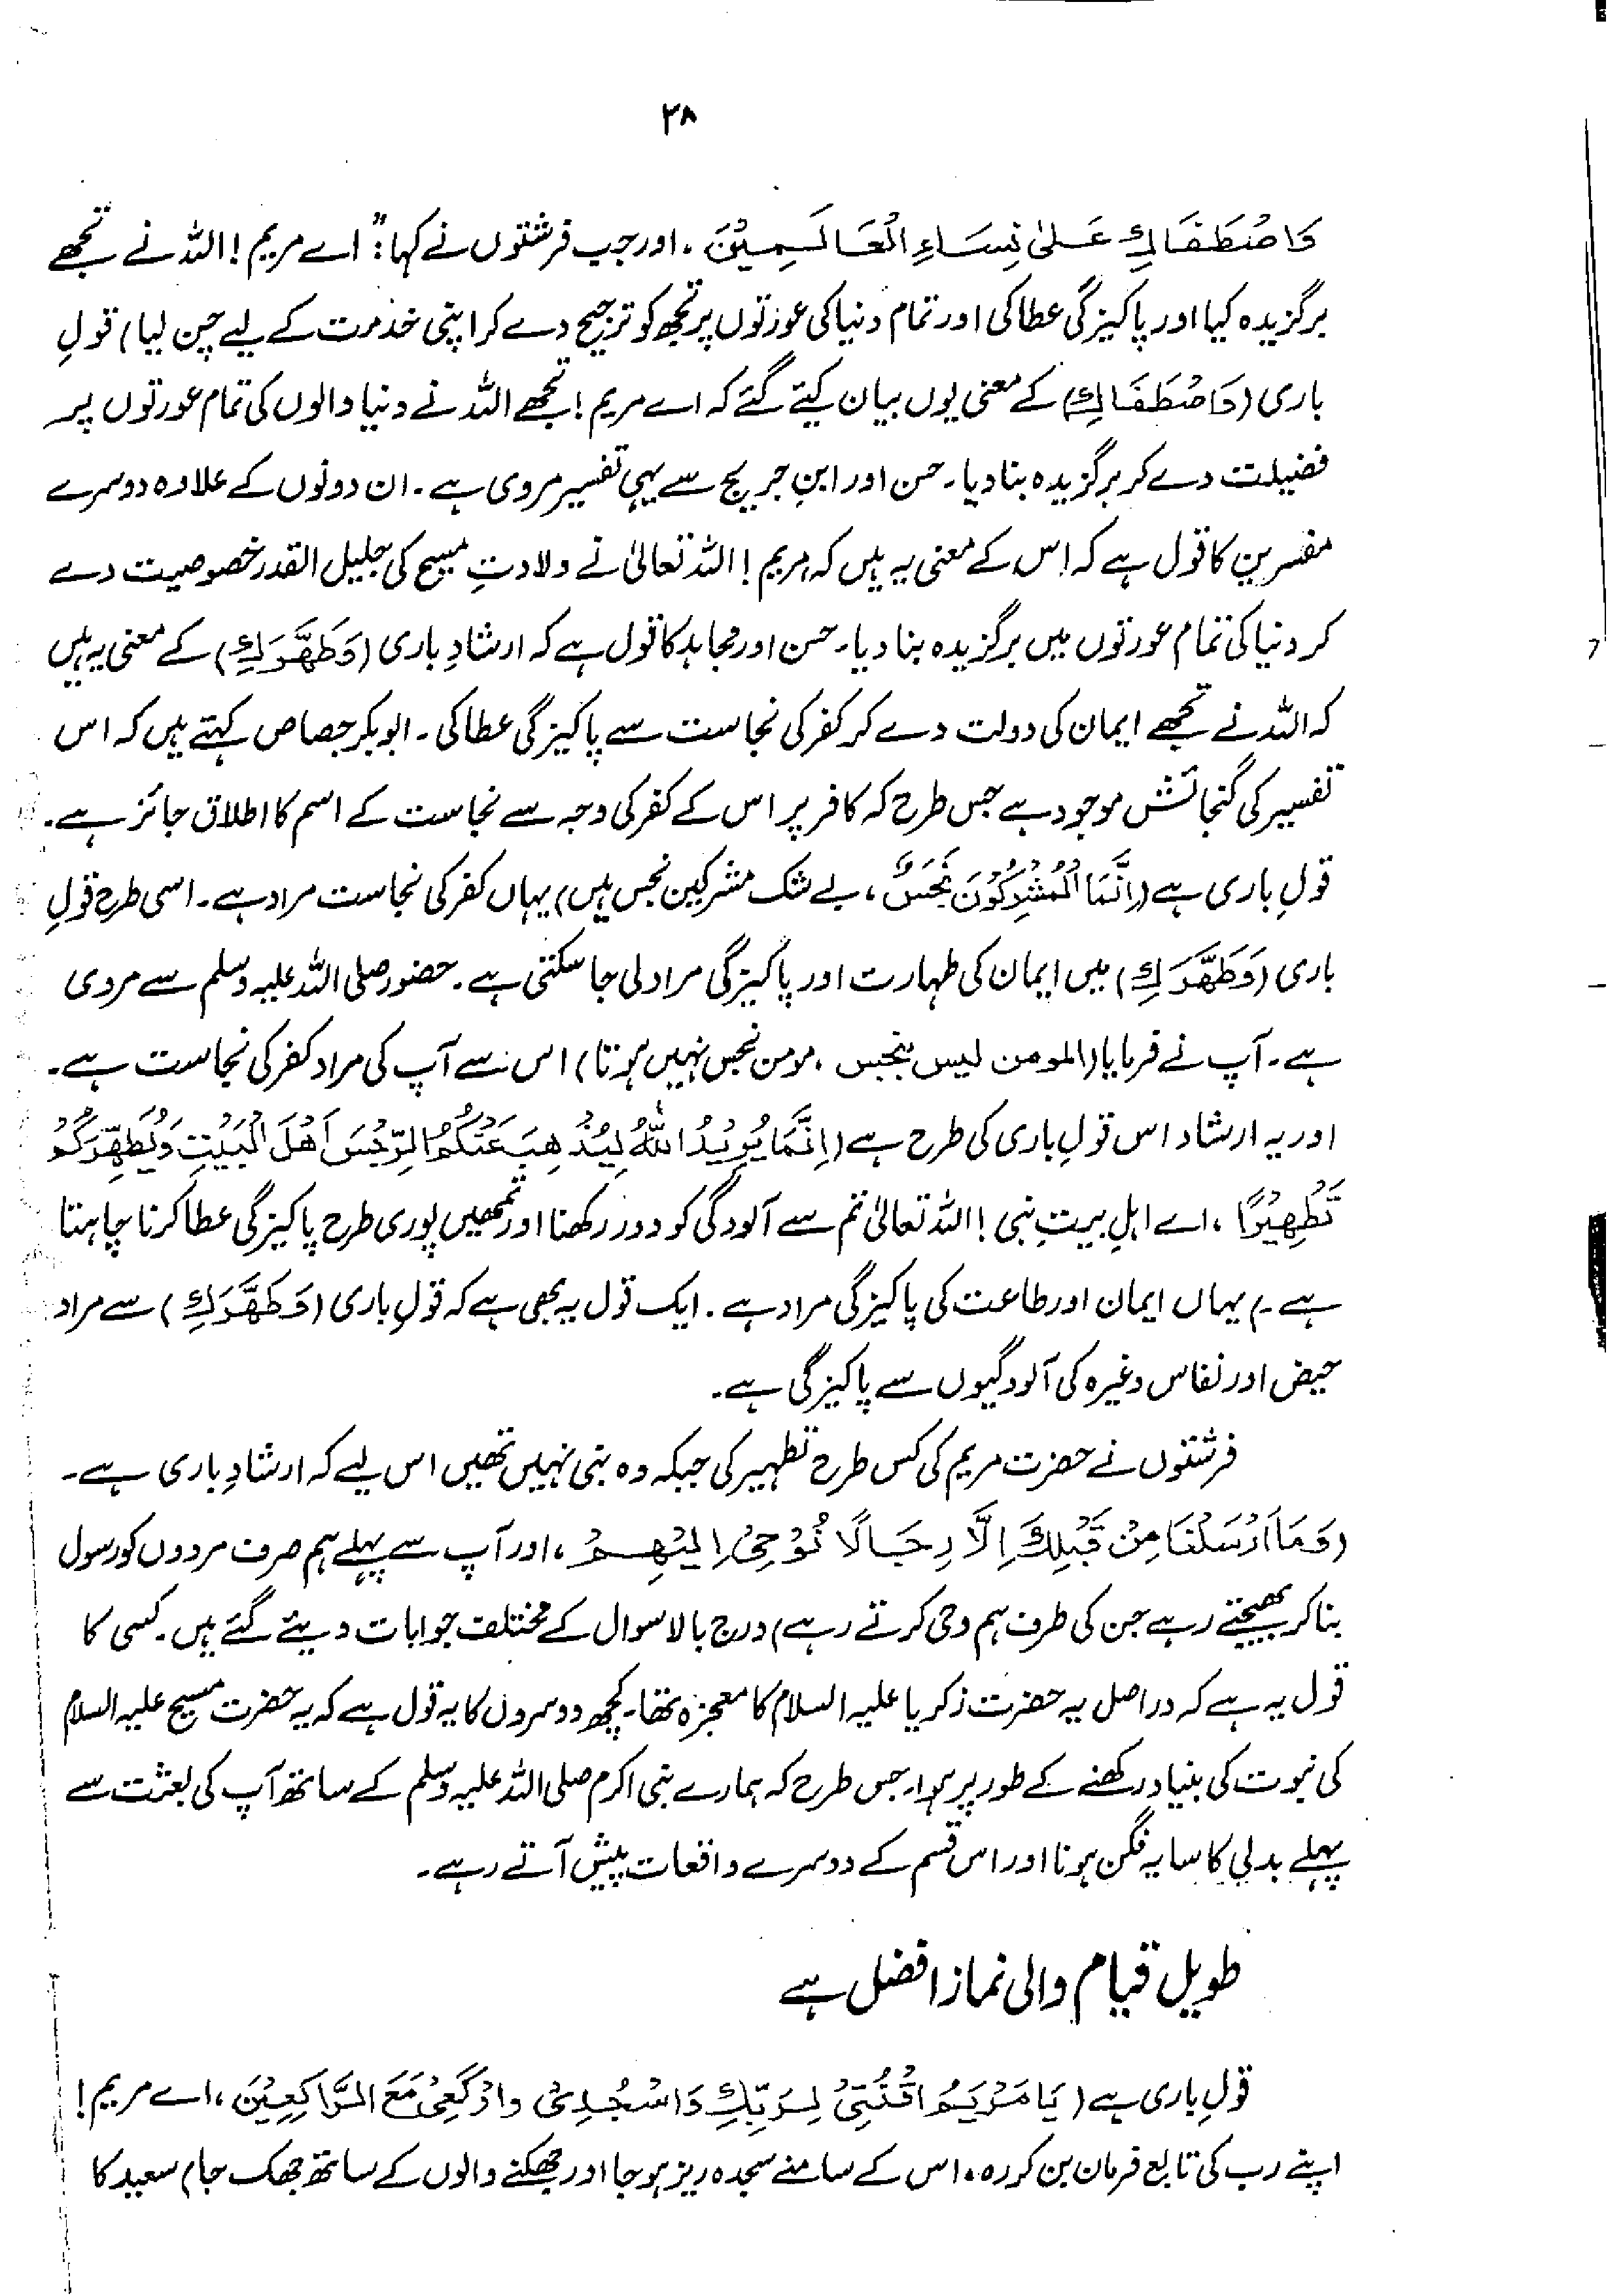 ۲۸
وَاصْطَفَاكِ عَلىٰ نِسَاءِ الْعَالَمِيْنَ ۔ اور جب فرشتوں نے کہا: "اے مریم! اللہ نے تجھے
برگزیدہ کیا اور پاکیزگی عطا کی اور تمام دنیا کی عورتوں پر تجھ کو ترجیح دے کر اپنی خدمت کے لیے چن لیا) قولِ
باری (وَاصْطَفَاكِ) کے معنی یوں بیان کیئے گئے کہ اے مریم! تجھے اللہ نے دنیا والوں کی تمام عورتوں پر
فضیلت دے کر برگزیدہ بنا دیا۔ حسن اور ابنِ جریج سے یہی تفسیر مروی ہے۔ ان دونوں کے علاوہ دوسرے
مفسرین کا قول ہے کہ اِس کے معنی یہ ہیں کہ مریم! اللہ تعالیٰ نے ولادتِ مسیح کی جلیل القدر خصوصیت دے
کر دنیا کی تمام عورتوں میں برگزیدہ بنا دیا۔ حسن اور مجاہد کا قول ہے کہ ارشادِ باری (وَطَهَّرَكِ) کے معنی یہ ہیں
کہ اللہ نے تجھے ایمان کی دولت دے کر کفر کی نجاست سے پاکیزگی عطا کی۔ ابوبکر جصاص کہتے ہیں کہ اس
تفسیر کی گنجائش موجود ہے جس طرح کہ کافر پر اس کے کفر کی وجہ سے نجاست کے اسم کا اطلاق جائز ہے۔
قولِ باری ہے (اِنَّمَا الْمُشْرِكُوْنَ نَجَسٌ ، بے شک مشرکین نجس ہیں) یہاں کفر کی نجاست مراد ہے۔ اسی طرح قولِ
باری (وَطَهَّرَكِ) میں ایمان کی طہارت اور پاکیزگی مراد لی جا سکتی ہے۔ حضور صلی اللہ علیہ وسلم سے مروی
ہے۔ آپ نے فرمایا (المومن لیس بنجس ، مومن نجس نہیں ہوتا) اس سے آپ کی مراد کفر کی نجاست ہے۔
اور یہ ارشاد اس قولِ باری کی طرح ہے (اِنَّمَا يُرِيْدُ اللّٰهُ لِيُذْهِبَ عَنْكُمُ الرِّجْسَ اَهْلَ الْبَيْتِ وَيُطَهِّرَكُمْ
تَطْهِيْرًا ، اے اہلِ بیتِ نبی! اللہ تعالیٰ تم سے آلودگی کو دور رکھنا اور تمھیں پوری طرح پاکیزگی عطا کرنا چاہتا
ہے۔) یہاں ایمان اور طاعت کی پاکیزگی مراد ہے۔ ایک قول یہ بھی ہے کہ قولِ باری (وَطَهَّرَكِ) سے مراد
حیض اور نفاس وغیرہ کی آلودگیوں سے پاکیزگی ہے۔
فرشتوں نے حضرت مریم کی کس طرح تطہیر کی جبکہ وہ نبی نہیں تھیں اس لیے کہ ارشادِ باری ہے۔
(وَمَا اَرْسَلْنَا مِنْ قَبْلِكَ اِلَّا رِجَالًا نُوْحِىْ اِلَيْهِمْ ، اور آپ سے پہلے ہم صرف مردوں کو رسول
بنا کر بھیجتے رہے جن کی طرف ہم وحی کرتے رہے) درج بالا سوال کے مختلف جوابات دیئے گئے ہیں۔ کسی کا
قول یہ ہے کہ دراصل یہ حضرت زکریا علیہ السلام کا معجزہ تھا۔ کچھ دوسروں کا یہ قول ہے کہ یہ حضرت مسیح علیہ السلام
کی نبوت کی بنیاد رکھنے کے طور پر ہوا۔ جس طرح کہ ہمارے نبی اکرم صلی اللہ علیہ وسلم کے ساتھ آپ کی بعثت سے
پہلے بدلی کا سایہ فگن ہونا اور اس قسم کے دوسرے واقعات پیش آتے رہے۔
طویل قیام والی نماز افضل ہے
قولِ باری ہے (يَا مَرْيَمُ اقْنُتِىْ لِرَبِّكِ وَاسْجُدِىْ وارْكَعِىْ مَعَ الرَّاكِعِيْنَ ، اے مریم!
اپنے رب کی تابع فرمان بن کر رہ، اس کے سامنے سجدہ ریز ہو جا اور جھکنے والوں کے ساتھ جھک جا) سعید کا